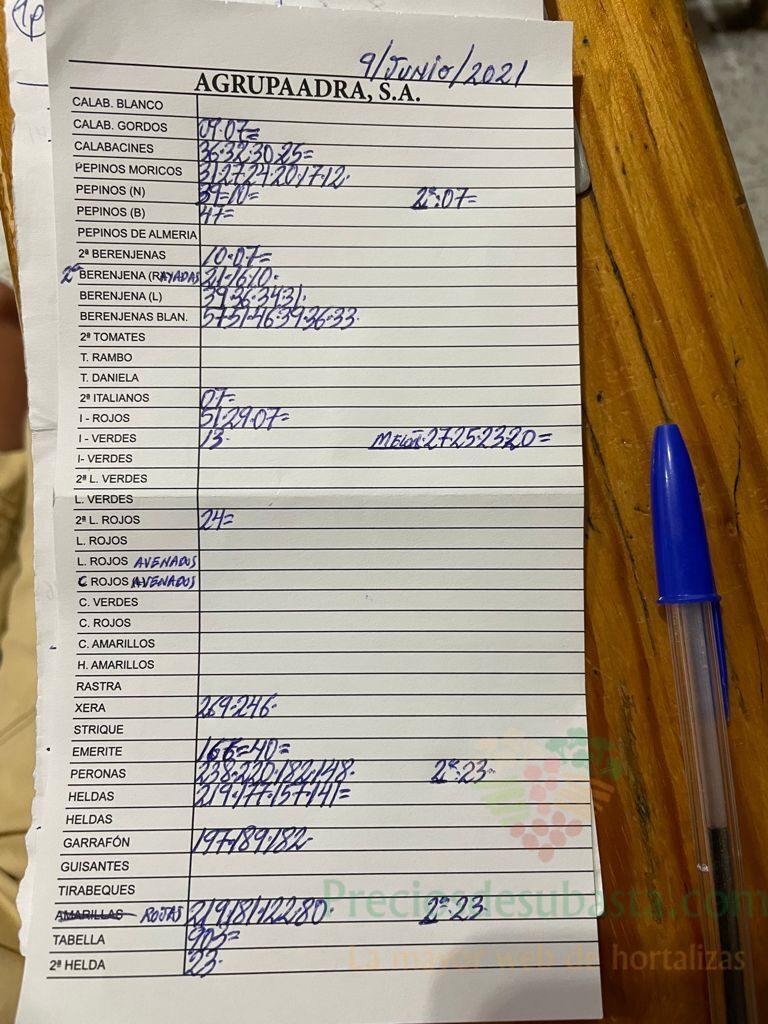 9/JUNIO/2021
AGRUPAADRA, S.A.
CALAB. BLANCO
CALAB. GORDOS 09.07=
CALABACINES 36.32.30.25=
PEPINOS MORICOS 31.27.24.20.17.12.
PEPINOS (N) 39=10= 2ª:07=
PEPINOS (B) 47=
PEPINOS DE ALMERIA
2ª BERENJENAS 10.07=
2ª BERENJENA (RAYADAS 21.16.10.
BERENJENA (L) 39.36.34.31.
BERENJENAS BLAN. 57.51.46.39.36.33.
2ª TOMATES
T. RAMBO
T. DANIELA
2ª ITALIANOS 07=
I - ROJOS 51.29.07=
I - VERDES 13. MELÓN.27.25.23.20=
I- VERDES
2ª L. VERDES
L. VERDES
2ª L. ROJOS 24=
L. ROJOS
L. ROJOS AVENADOS
C ROJOS AVENADOS
C. VERDES
C. ROJOS
C. AMARILLOS
H. AMARILLOS
RASTRA
XERA 269.246.
STRIQUE
EMERITE 166=40=
PERONAS 238.220.182.148. 2ª:23.
HELDAS 219.177.157.141=
HELDAS
GARRAFÓN 197.189.182.
GUISANTES
TIRABEQUES
Preciosdesubasta.com
AMARILLAS ROJAS 219.181.122.80. 2ª:23.
TABELLA 903=
La mayor web de hortalizas
2ª HELDA 23.